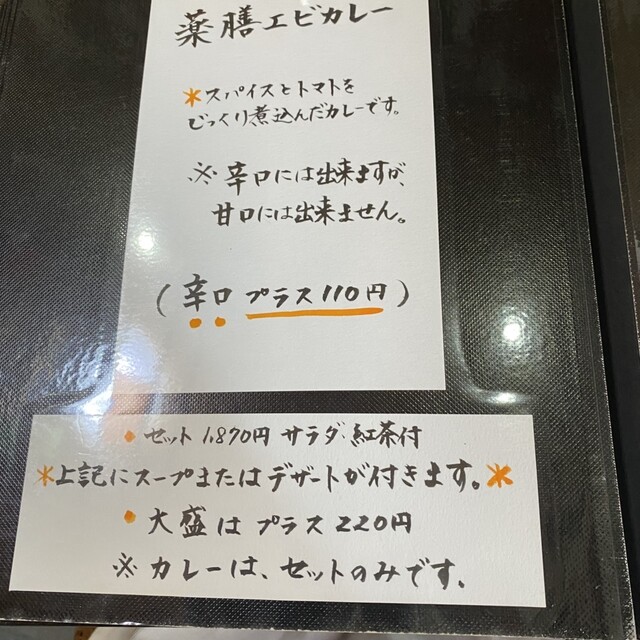 薬膳エビカレー
*スパイスとトマトを
じっくり煮込んだカレーです。
※辛口には出来ますが、
甘口には出来ません。
(辛口 プラス110円)
・セット 1,870円 サラダ・紅茶付
*上記にスープまたはデザートが付きます。*
・大盛は プラス220円
※カレーは、セットのみです。